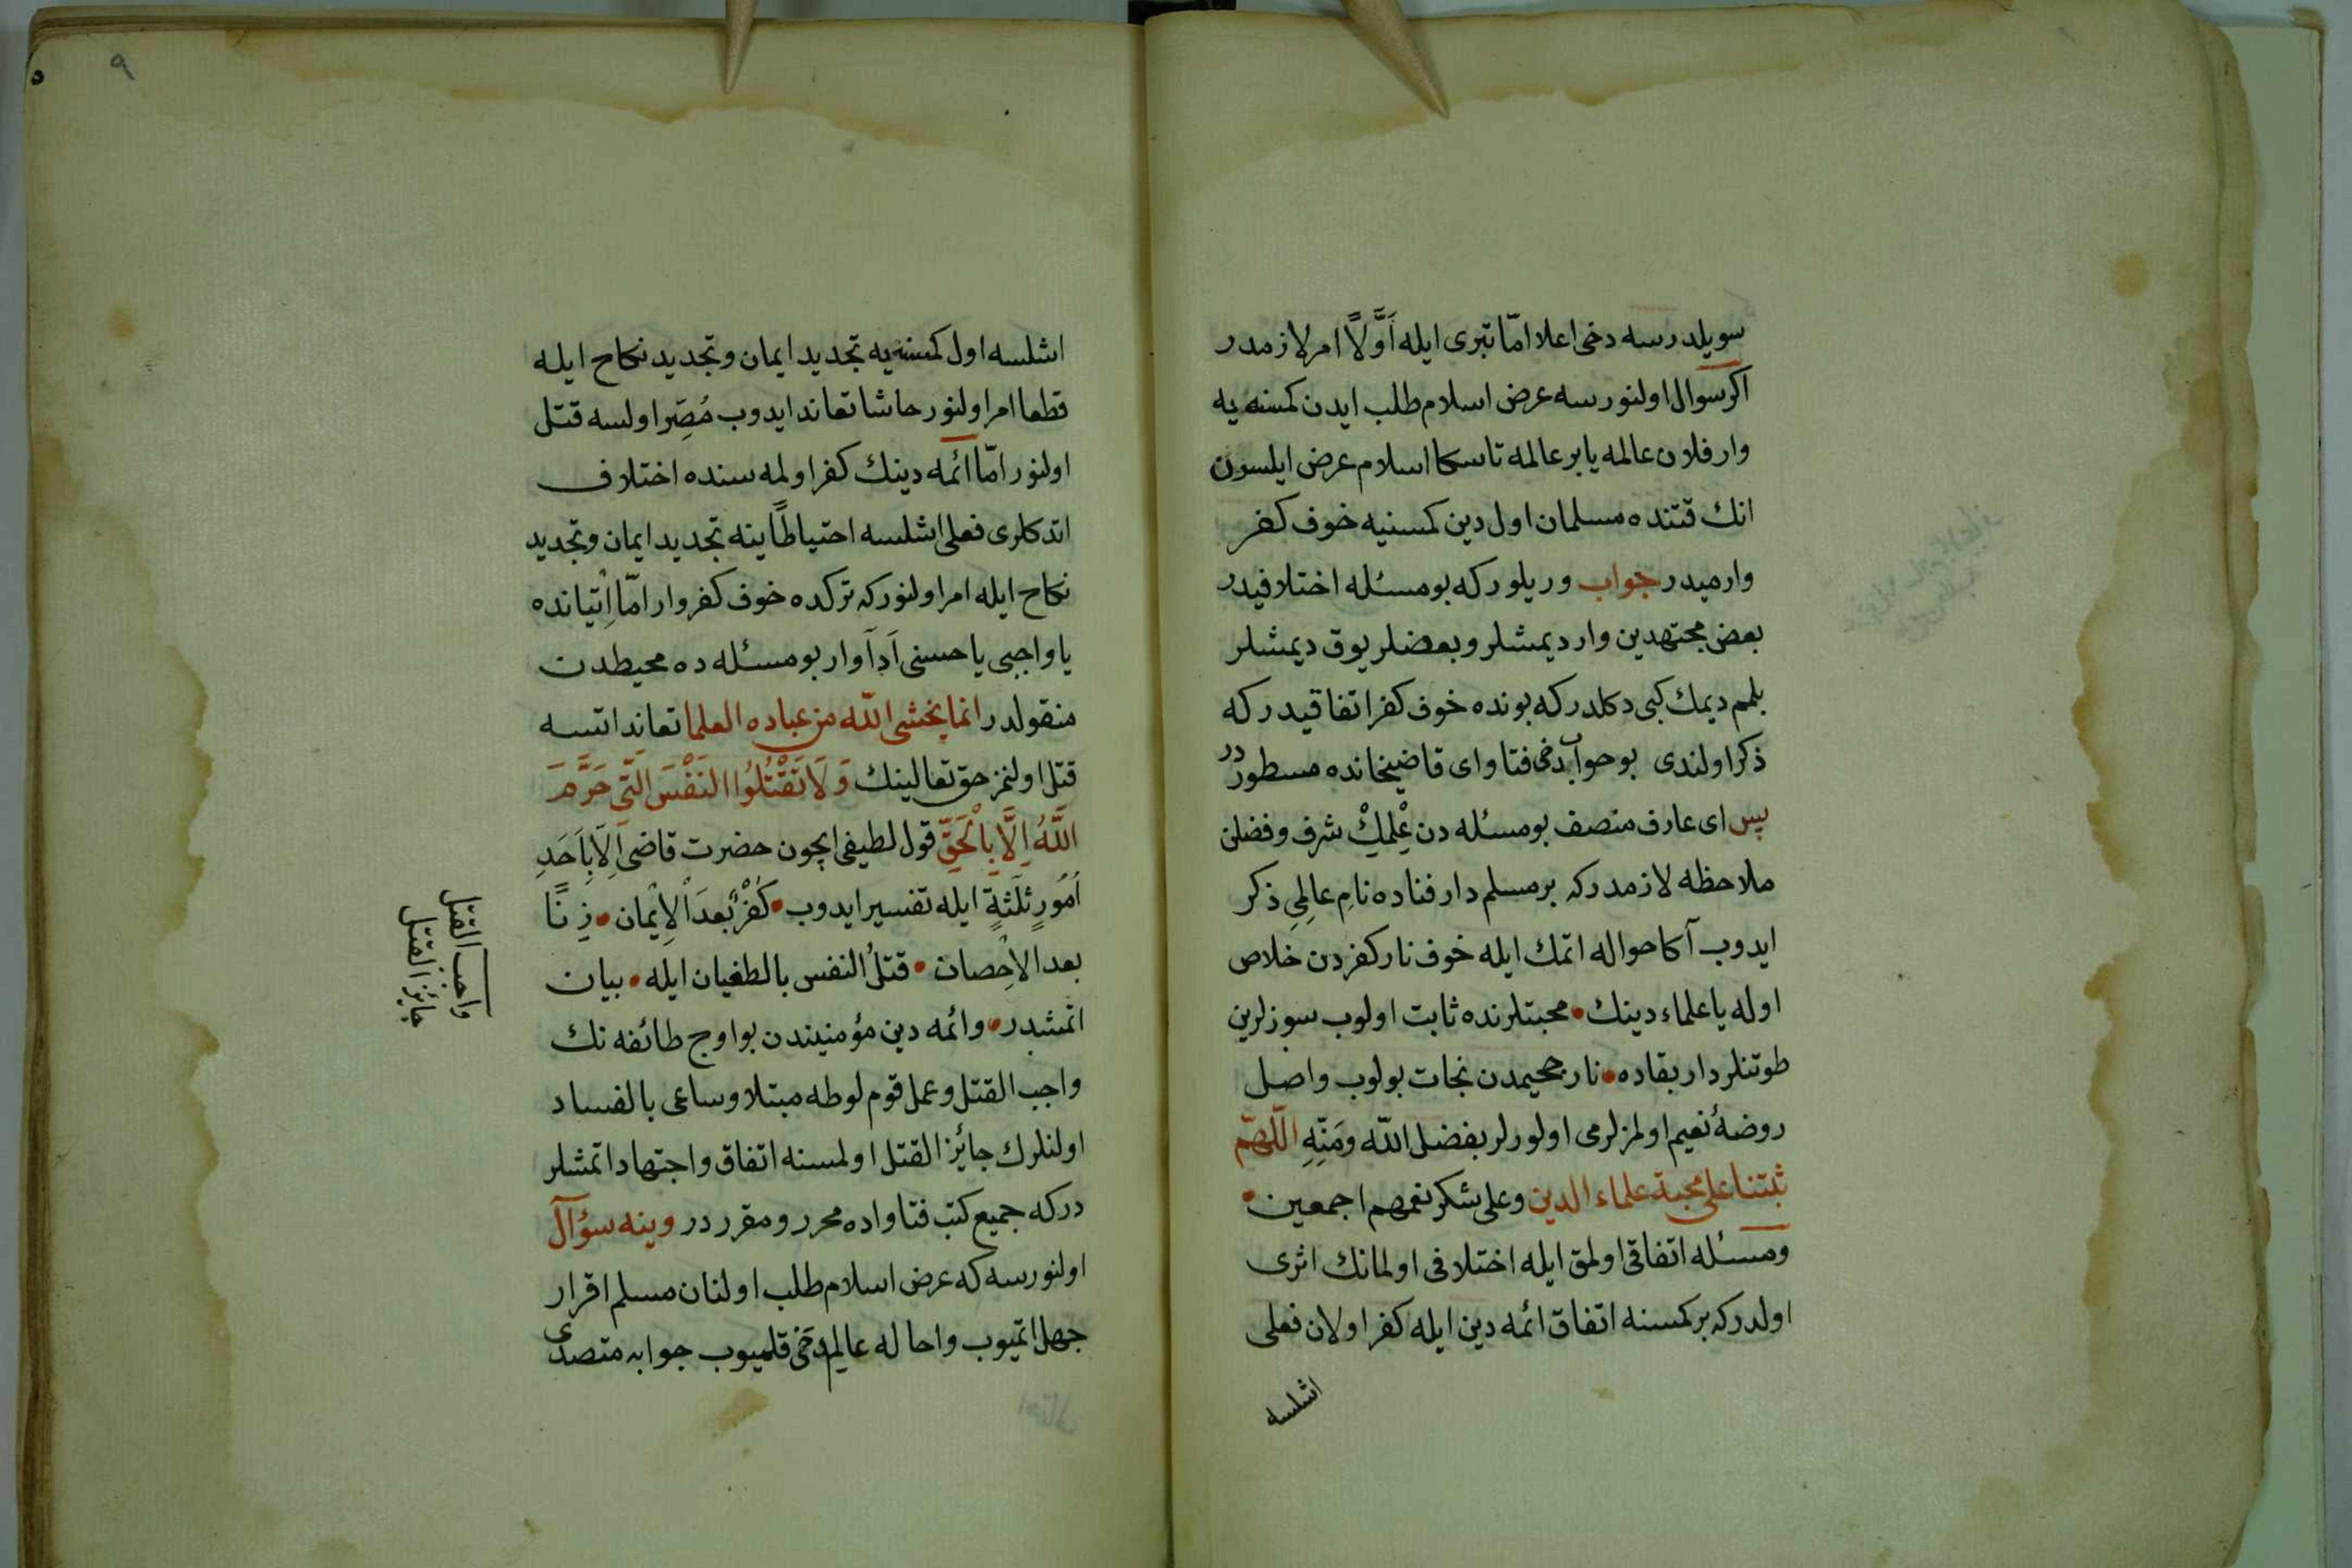 سويلدرسه دخى اعلا امّا تبرى ايله اَوَّلاً امر لازمدر
اكر سوال اولنورسه عرض اسلام طلب ايدن كمسنه يه
وار فلان عالمه يا بر عالمه تا سكا اسلام عرض ايلسون
انك قتنده مسلمان اول دين كمسنيه خوف كفر
وارميدر جواب وريلور كه بو مسئله اختلافيدر
بعض مجتهدين وار ديمشلر و بعضلر يوق ديمشلر
بلمم ديمك كبى دكلدر كه بونده خوف كفر اتفاقيدر كه
ذكر اولندى بو جواب دخى فتاواى قاضيخانده مسطوردر
پس اى عارف منصف بو مسئله دن عِلْمِكْ شرف و فضلن
ملاحظه لازمدر كه بر مسلم دار فناده نامِ عالِمِى ذكر
ايدوب آكا حواله اتمك ايله خوف نار كفردن خلاص
اوله يا علماء دينك • محبتلرنده ثابت اولوب سوزلرين
طوتنلر دار بقاده • نار جحيمدن نجات بولوب واصل
روضهٔ نعيم اولمزلرمى اولورلر بفضل الله ومَنِّهِ اللّهمّ
ثبتنا على محبة علماء الدين وعلى شكر نعمهم اجمعين •
ومسئله اتفاقى اولمق ايله اختلافى اولمانك اثرى
اولدركه بر كمسنه اتفاق ائمه دين ايله كفر اولان فعلى
اشلسه
٩
اشلسه اول كمسنه يه تجديد ايمان وتجديد نكاح ايله
قطعا امر اولنور حاشا تعاند ايدوب مُصِّر اولسه قتل
اولنور امّا ائمه دينك كفر اولمه سنده اختلاف
اتدكلرى فعلى اشلسه احتياطاً ينه تجديد ايمان وتجديد
نكاح ايله امر اولنور كه تركده خوف كفر وار امّا اِتياننده
يا واجبى يا حسنى اَدَا وار بو مسئله ده محيطدن
منقولدر انما يخشى الله من عباده العلما تعاند اتسه
قتل اولنمز حق تعالينك وَلَا تَقْتُلُوا النَفْسَ الَّتِى حَرَّمَ
اللَّهُ اِلَّا بِالْحَقِّ قول لطيفى ايچون حضرت قاضى اِلَّا بِاَحَدِ
اُمُورٍ ثَلَثَةٍ ايله تفسير ايدوب • كُفْرٌ بَعدَ الْاِيْمان • زِنًا
بعد الاِحْصان • قتلُ النفس بالطغيان ايله • بيان
اتمشدر • وائمه دين مؤمنيندن بو اوج طائفه نك
واجب القتل وعمل قوم لوطه مبتلا وساعى بالفساد
اولنلرك جائز القتل اولمسنه اتفاق واجتهاد اتمشلر
دركه جميع كتب فتاواده محرر و مقرر در وينه سؤال
اولنورسه كه عرض اسلام طلب اولنان مسلم اقرار
جهل اتميوب واحاله عالِم دخى قلميوب جوابه متصدى
واجب القتل
جائز القتل